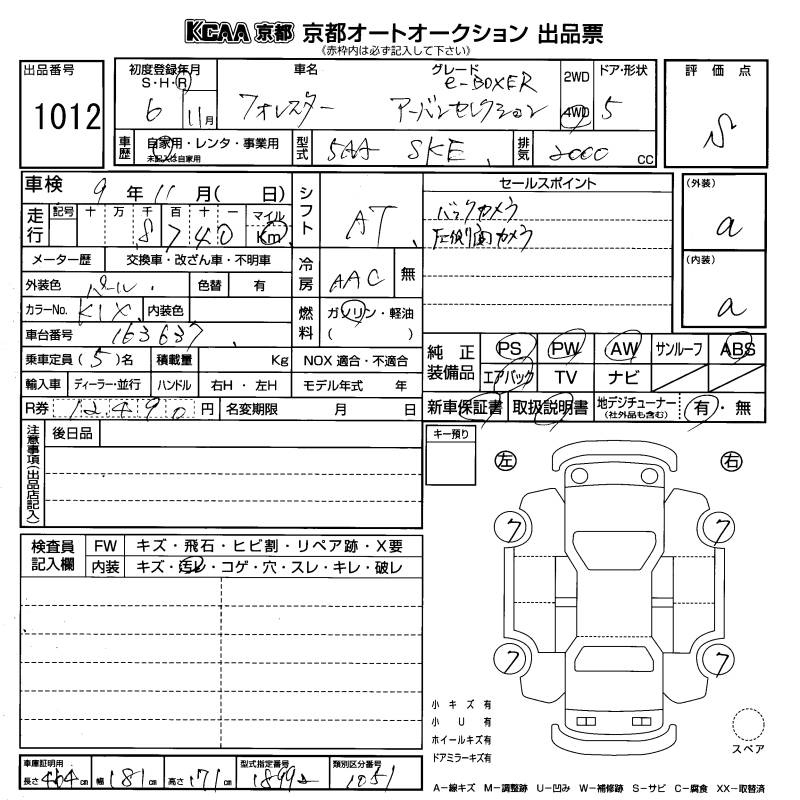 KCAA 京都 京都オートオークション 出品票
(赤枠内は必ず記入して下さい)
出品番号
1012
初度登録年月
S・H・R
6 11月
車名
フォレスター
グレード
e-BOXER
アーバンセレクション
2WD
4WD
ドア・形状
5
評価点
S
車歴
自家用・レンタ・事業用
未記入は自家用
型式
5AA SKE
排気
2000 CC
車検 9年11月( 日)
走行
記号 十 万 千 百 十 一 マイル
8 7 4 0 Km
メーター歴 交換車・改ざん車・不明車
外装色 パール 色替 有
カラーNo. K1X 内装色
車台番号 163637
乗車定員(5)名 積載量 Kg
輸入車 ディーラー・並行 ハンドル 右H・左H
R券 12490円 名変期限 月 日
シフト AT
冷房 AAC 無
燃料 ガソリン・軽油
( )
NOX 適合・不適合
モデル年式 年
セールスポイント
バックカメラ
左側面カメラ
(外装)
a
(内装)
a
純正装備品
PS PW AW サンルーフ ABS
エアバック TV ナビ
新車保証書 取扱説明書 地デジチューナー(社外品も含む) 有・無
注意事項(出品店記入)
後日品
キー預り
左 右
7 7
7 7
検査員記入欄
FW キズ・飛石・ヒビ割・リペア跡・X要
内装 キズ・汚レ・コゲ・穴・スレ・キレ・破レ
小キズ有
小U有
ホイールキズ有
ドアミラーキズ有
スペア
車庫証明用
長さ 464cm 幅 181cm 高さ 171cm
型式指定番号
18992
類別区分番号
1051
A−線キズ M−調整跡 U−凹み W−補修跡 S−サビ C−腐食 XX−取替済